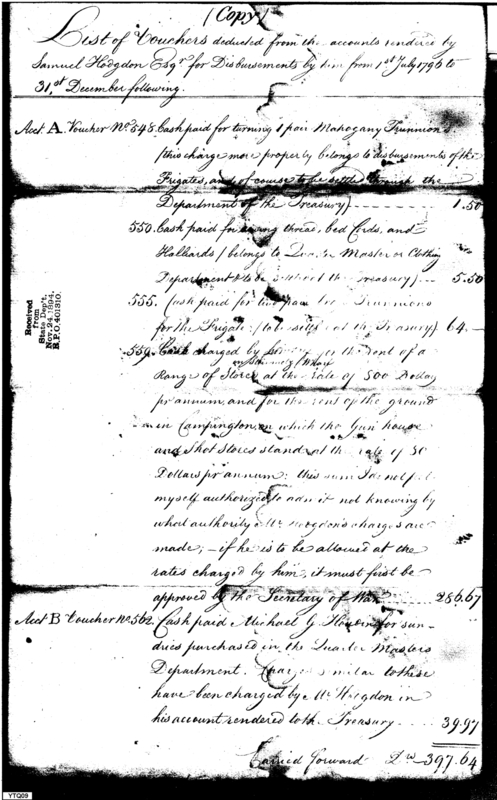 (Copy)
List of Vouchers deducted from the accounts rendered by
Samuel Hodgdon Esqr for Disbursements by him from 1st July 1796 to
31st December following.
Acct A. Voucher No 548. Cash paid for turning 1 pair Mahogany Trunnions
(this charge more properly belongs to disbursements of the
Frigates, and of course to be settled through the
Department of the Treasury) 1.50
550. Cash paid for thread, bed Cords, and
Halliards (belongs to Quarter Master or Clothing
Department & to be the Treasury) 5.50
555. Cash paid for two pair Trunnions
for the Frigate (to be settled at the Treasury) 64.-
559. Cash charged by for the rent of a
Range of Stores at the rate of 500 Dollars
on Wharf
pr annum, and for the rent of the ground
in Campington, on which the Gun house
and Shot Stores stand at the rate of 50
Dollars pr annum; this sum I do not feel
myself authorized to admit not knowing by
what authority Mr Hodgdon's charges are
made; - if he is to be allowed at the
rates charged by him, it must first be
approved by the Secretary of War 286.67
Acct B Voucher No. 562. Cash paid Michael G. for sun-
dries purchased in the Quarter Masters
Department. Charges similar to these
have been charged by Mr Hodgdon in
his account rendered to the Treasury 39.97
Carried forward 397.64
Received
from
State Dep't.
Nov. 24. 1894.
R.P.O. 401310.
YTQ09